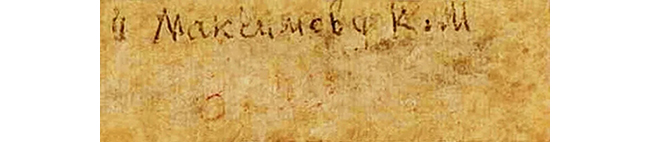 и Максимову К.М